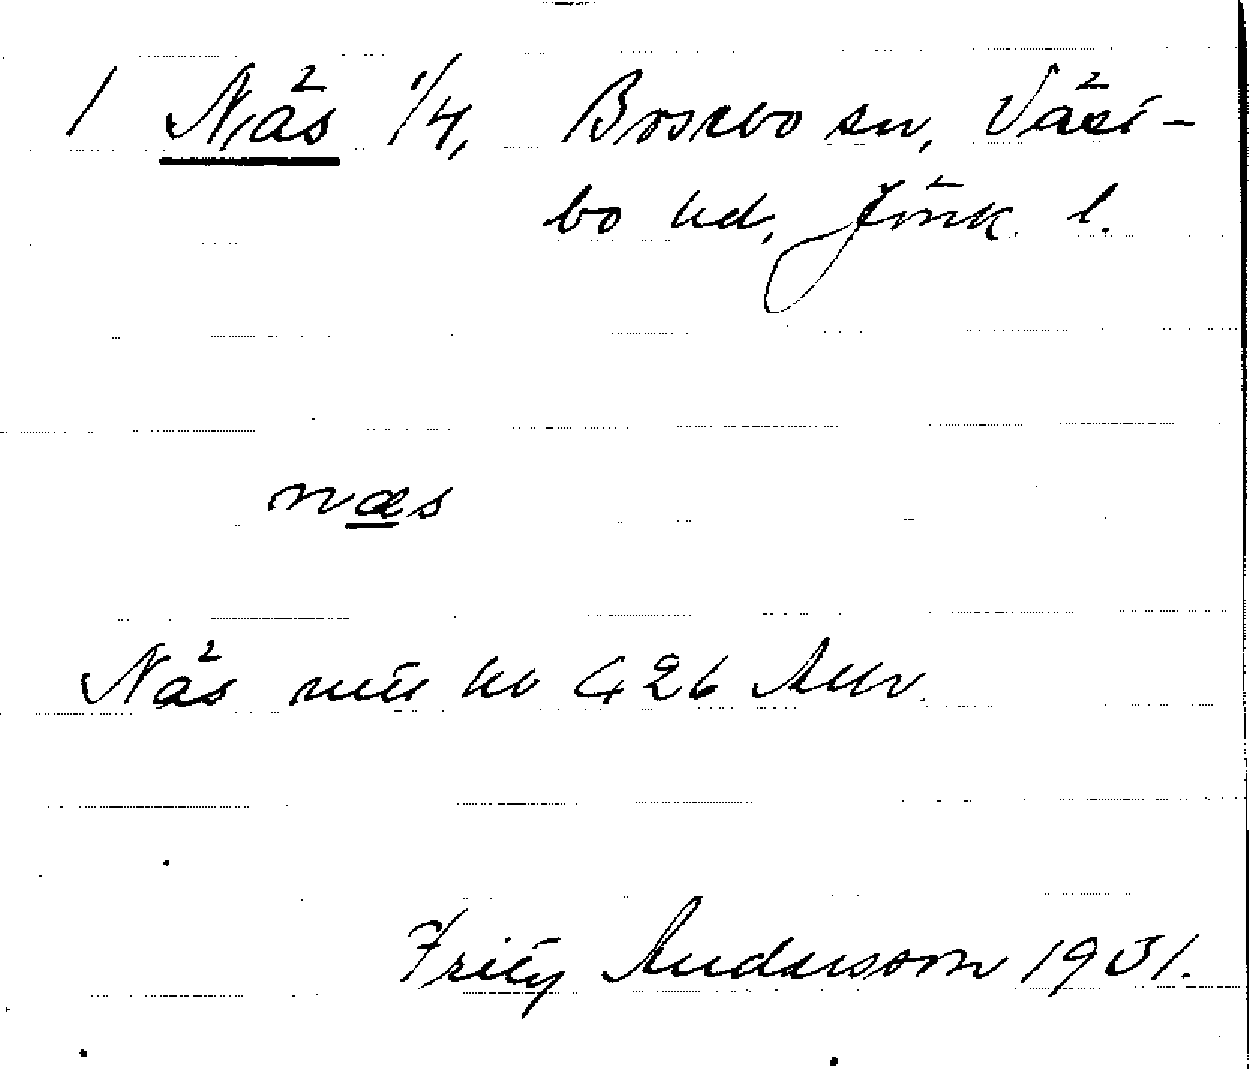 1 Näs 1/4, Bosebo sn, Väst-
bo hd, Jönk. l.
næs
Näs nris hv C 426 Allv.
Fritz Andersson 1931.